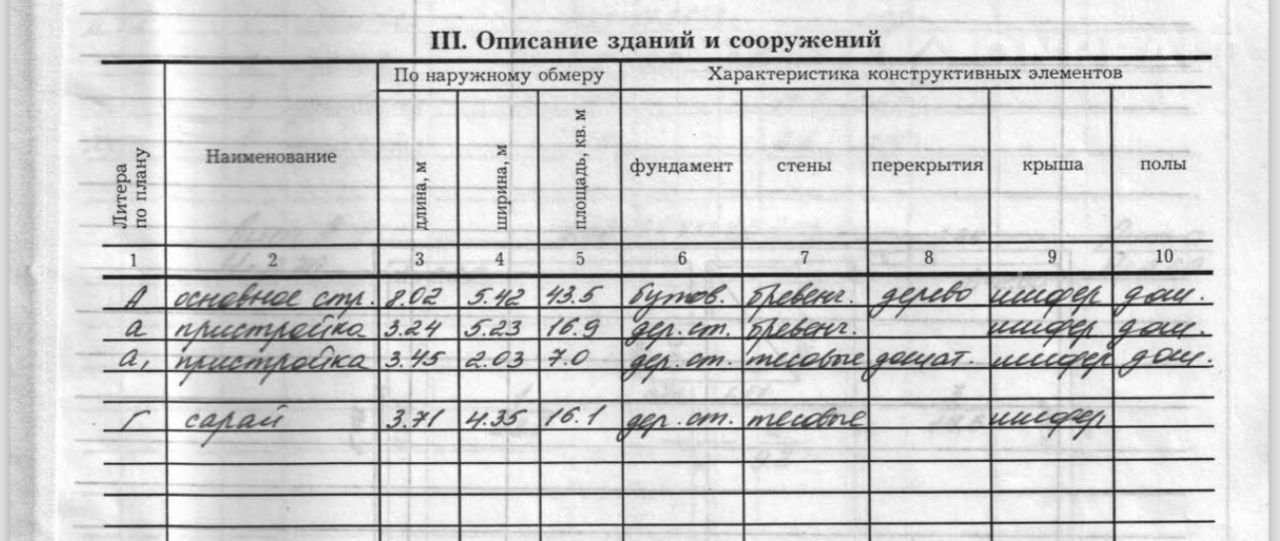 III. Описание зданий и сооружений
Литера по плану
Наименование
По наружному обмеру
Характеристика конструктивных элементов
длина, м
ширина, м
площадь, кв. м
фундамент
стены
перекрытия
крыша
полы
1 2 3 4 5 6 7 8 9 10
А основное стр. 8.02 5.42 43.5 бутов. бревенч. дерево шифер дощ.
а пристройка 3.24 5.23 16.9 дер. ст. бревенч. шифер дощ.
а, пристройка 3.45 2.03 7.0 дер. ст. тесовые дощат. шифер дощ.
Г сарай 3.71 4.35 16.1 дер. ст. тесовые шифер